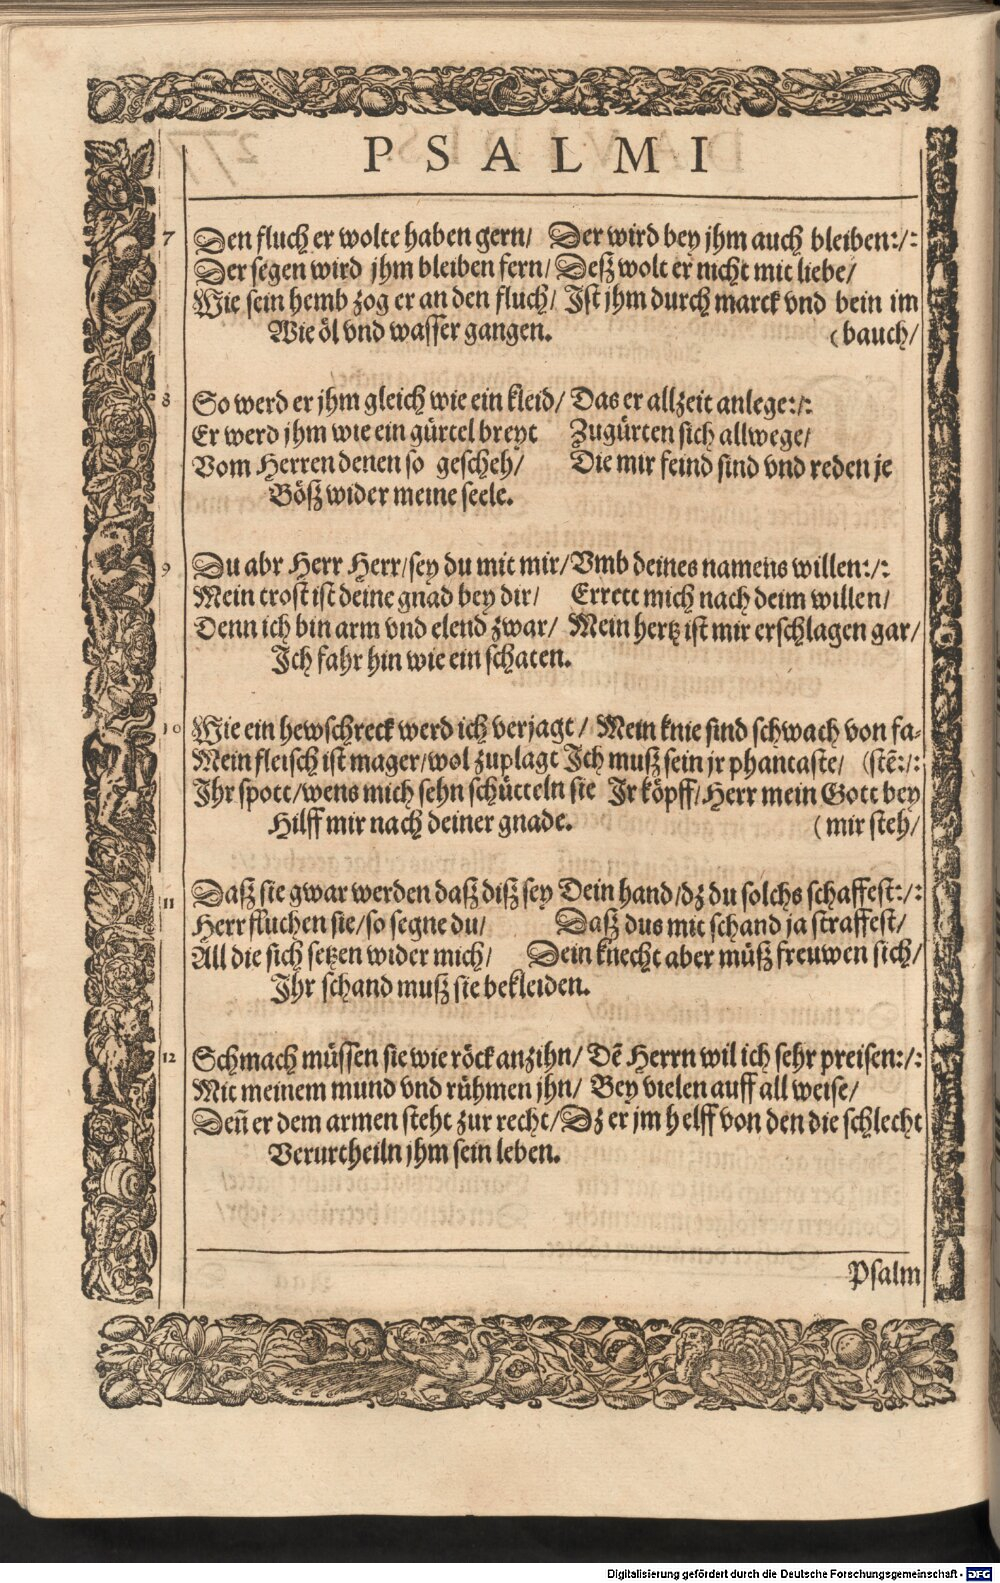 PSALMI
7 Den fluch er wolte haben gern/ Der wird bey jhm auch bleiben:/:
Der segen wird jhm bleiben fern/ Deß wolt er nicht mit liebe/
Wie sein hemb zog er an den fluch/ Ist jhm durch marck vnd bein im
Wie öl vnd wasser gangen. (bauch/
8 So werd er jhm gleich wie ein kleid/ Das er allzeit anlege:/:
Er werd jhm wie ein gürtel breyt Zugürten sich allwege/
Vom Herren denen so gescheh/ Die mir feind sind vnd reden je
Böß wider meine seele.
9 Du abr Herr Herr/sey du mit mir/ Vmb deines namens willen:/:
Mein trost ist deine gnad bey dir/ Errett mich nach deim willen/
Denn ich bin arm vnd elend zwar/ Mein hertz ist mir erschlagen gar/
Ich fahr hin wie ein schaten.
10 Wie ein hewschreck werd ich verjagt/ Mein knie sind schwach von fa-
Mein fleisch ist mager/wol zuplagt Ich muß sein jr phantaste/ (stē:/:
Ihr spott/wens mich sehn schütteln sie Ir köpff/Herr mein Gott bey
Hilff mir nach deiner gnade. (mir steh/
11 Daß sie gwar werden daß diß sey Dein hand/dz du solchs schaffest:/:
Herr fluchen sie/so segne du/ Daß dus mit schand ja straffest/
All die sich setzen wider mich/ Dein knecht aber müß freuwen sich/
Ihr schand muß sie bekleiden.
12 Schmach müssen sie wie röck anzihn/ Dē Herrn wil ich sehr preisen:/:
Mit meinem mund vnd rühmen jhn/ Bey vielen auff all weise/
Deñ er dem armen steht zur recht/ Dz er jm helff von den die schlecht
Verurtheiln jhm sein leben.
Psalm
Digitalisierung gefördert durch die Deutsche Forschungsgemeinschaft - DFG